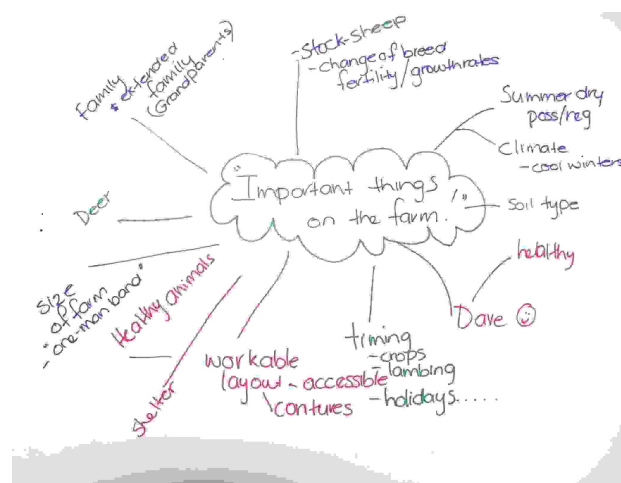 "Important things
on the farm!"
- Stock - sheep
- change of breed
fertility / growth rates
Summer dry
poss/neg
Climate
- cool winters
Soil type
healthy
Dave
timing
- crops
- lambing
- holidays.....
workable
layout - accessible
contures
Healthy animals
shelter
Size
of farm
- "one-man band"
Deer
Family
& extended
family
(Grandparents)